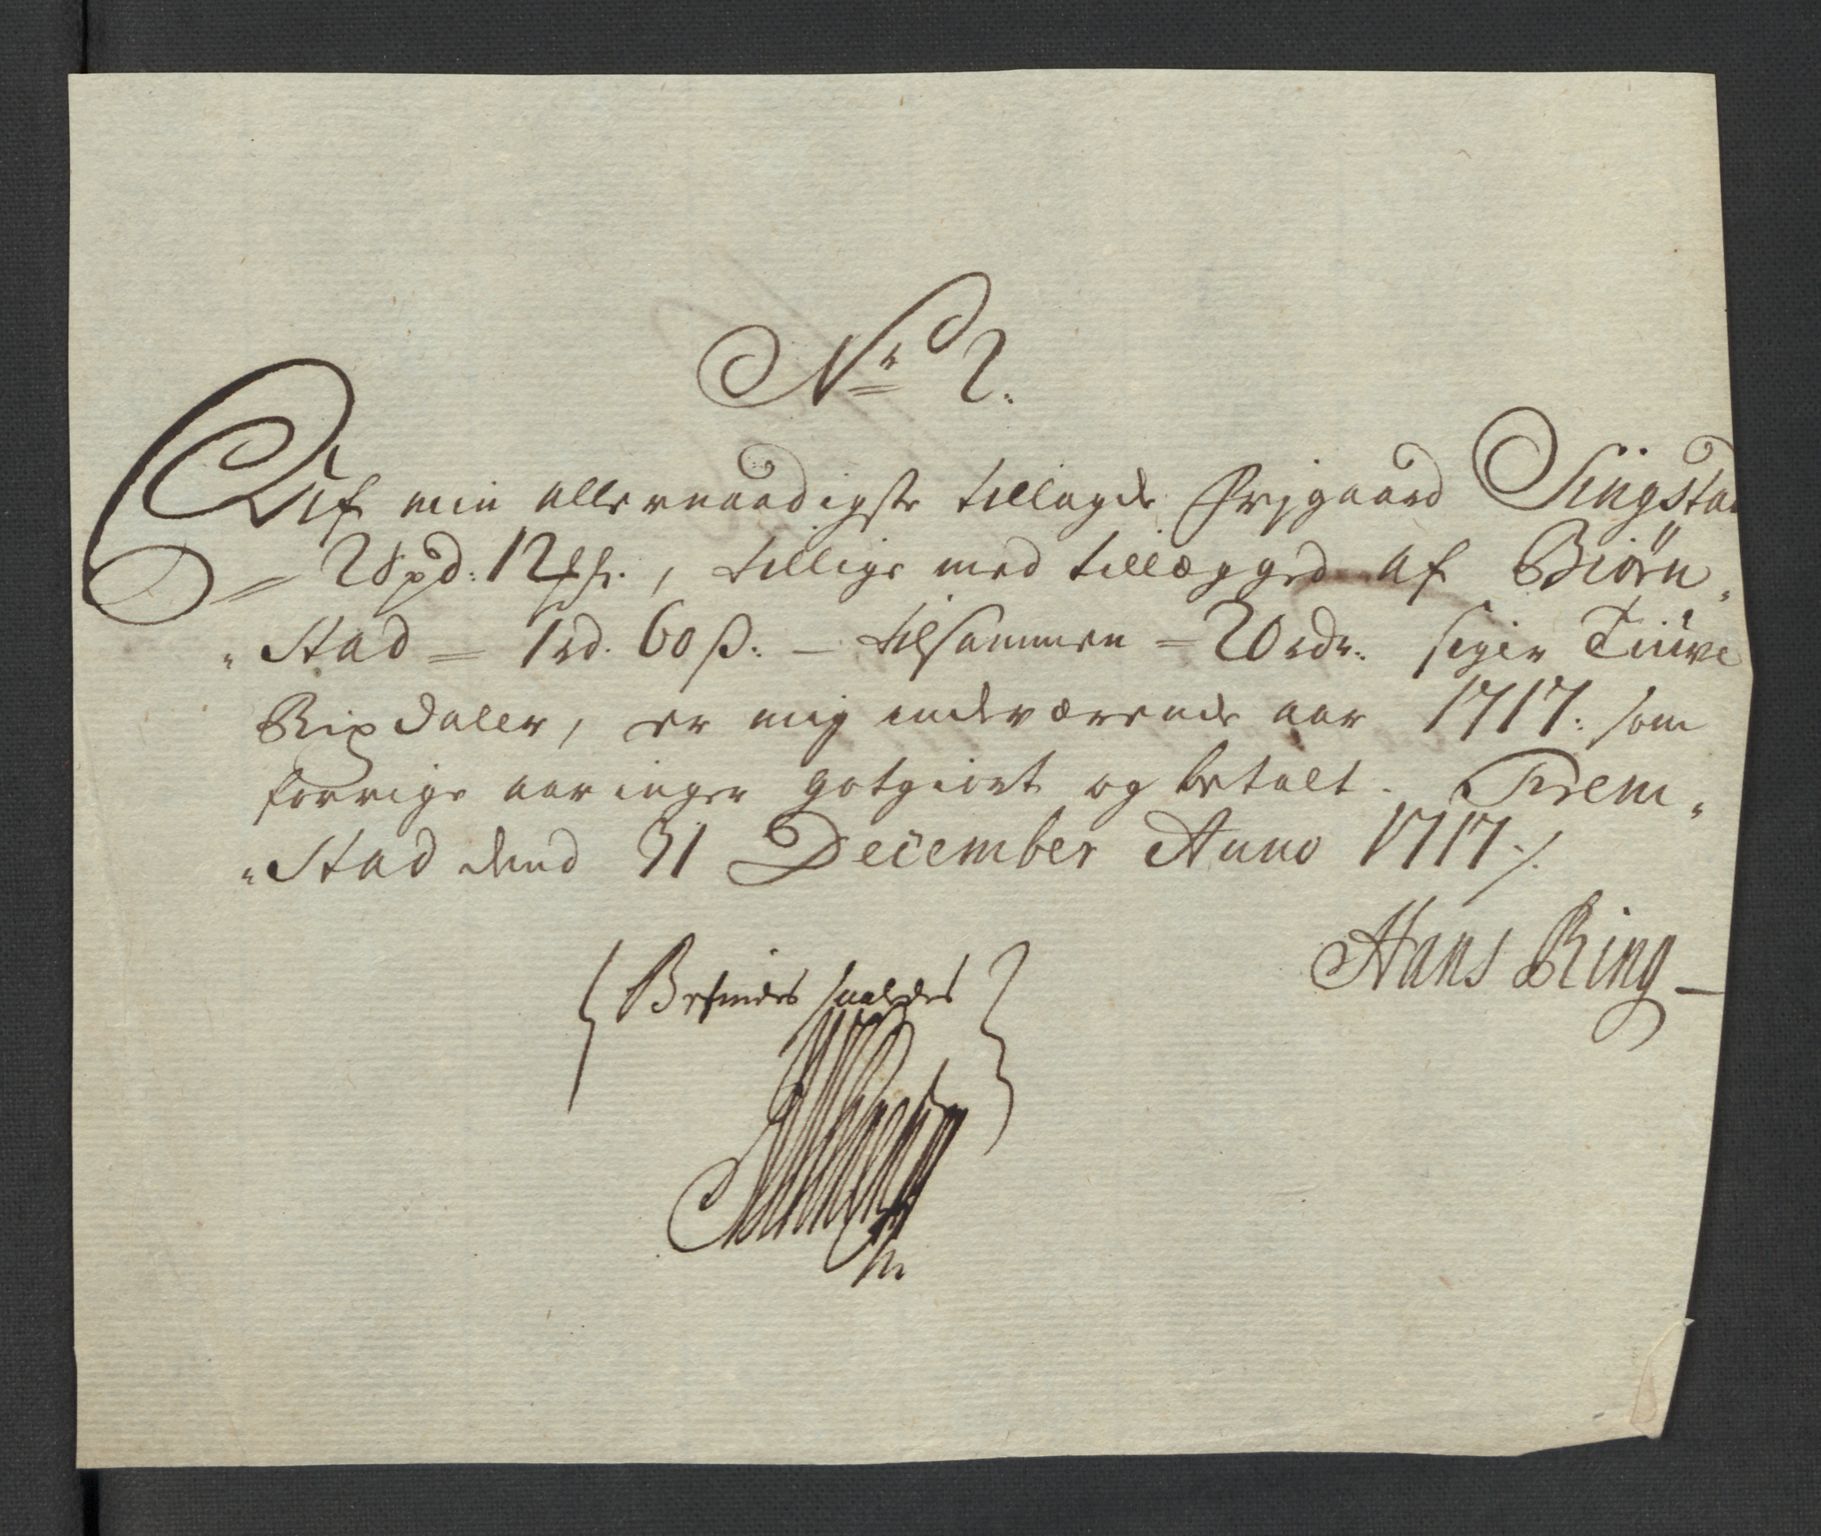 No 2.
Aff min allernaadigste tillagde Frjgaard Singstad
= 2 Spd: 12 sh:, tillige med tillægged af Biörn„
„Stad = 1 rd. 60 β. — tilsammen = 20 rdr. siger Tiüve
Rixdaler, er mig indeværende aar 1717. som
forrige aaringer gotgiort og betalt. Trem„
„Stad dend 31 December Anno 1717 ./.
Hans Ring
Befindes saaledes